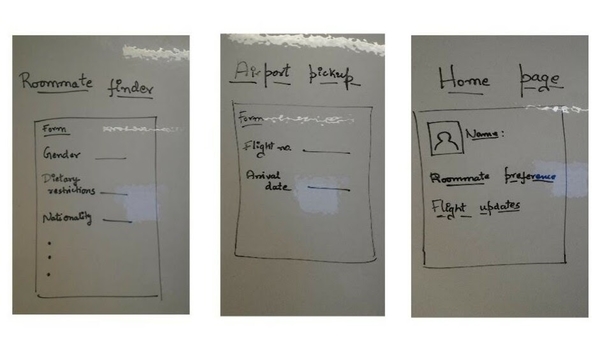 Roommate finder
Form
Gender
Dietary
restrictions
Nationality
Airport pickup
Form
Flight no.
Arrival
date
Home page
Name:
Roommate preference
Flight updates